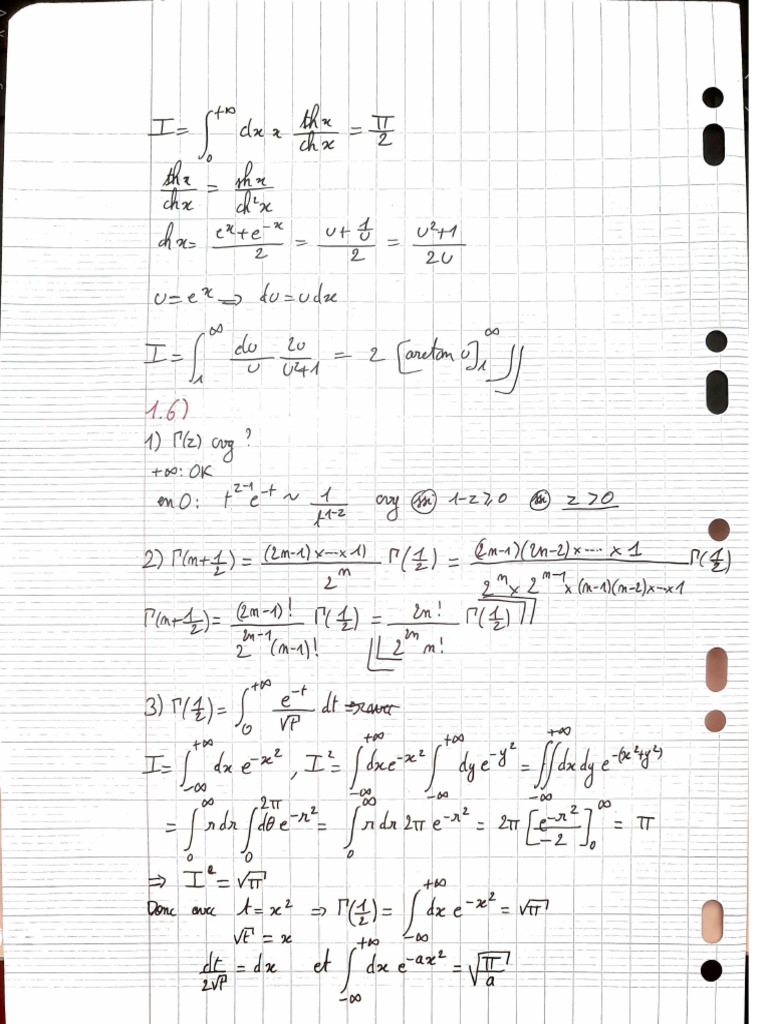 I = ∫₀^{+∞} dx x thx/chx = π/2
thx/chx = shx/ch²x
chx = (e^x + e^{-x})/2 = (u + 1/u)/2 = (u²+1)/2u
u = e^x ⇒ du = u dx
I = ∫₁^∞ du/u 2u/(u²+1) = 2 [arctan u]₁^∞
1.6)
1) Γ(z) cvg ?
+∞ : OK
en 0 : t^{z-1} e^{-t} ~ 1/t^{1-z} cvg ssi 1-z ⩾ 0 ssi z > 0
2) Γ(n+1/2) = ((2n-1)×···×1)/2^n Γ(1/2) = ((2n-1)(2n-2)×····×1)/(2^n × 2^{n-1} × (n-1)(n-2)×···×1) Γ(1/2)
Γ(n+1/2) = (2n-1)!/(2^{2n-1} (n-1)!) Γ(1/2) = 2n!/(2^{2n} n!) Γ(1/2)
3) Γ(1/2) = ∫₀^{+∞} e^{-t}/√t dt
I = ∫_{-∞}^{+∞} dx e^{-x²} , I² = ∫_{-∞}^{+∞} dx e^{-x²} ∫_{-∞}^{+∞} dy e^{-y²} = ∬_{-∞}^{+∞} dx dy e^{-(x²+y²)}
= ∫₀^∞ r dr ∫₀^{2π} dθ e^{-r²} = ∫₀^∞ r dr 2π e^{-r²} = 2π [e^{-r²}/-2]₀^∞ = π
⇒ I = √π
Donc avec t = x² ⇒ Γ(1/2) = ∫_{-∞}^{+∞} dx e^{-x²} = √π
√t = x
dt/2√t = dx et ∫_{-∞}^{+∞} dx e^{-ax²} = √(π/a)